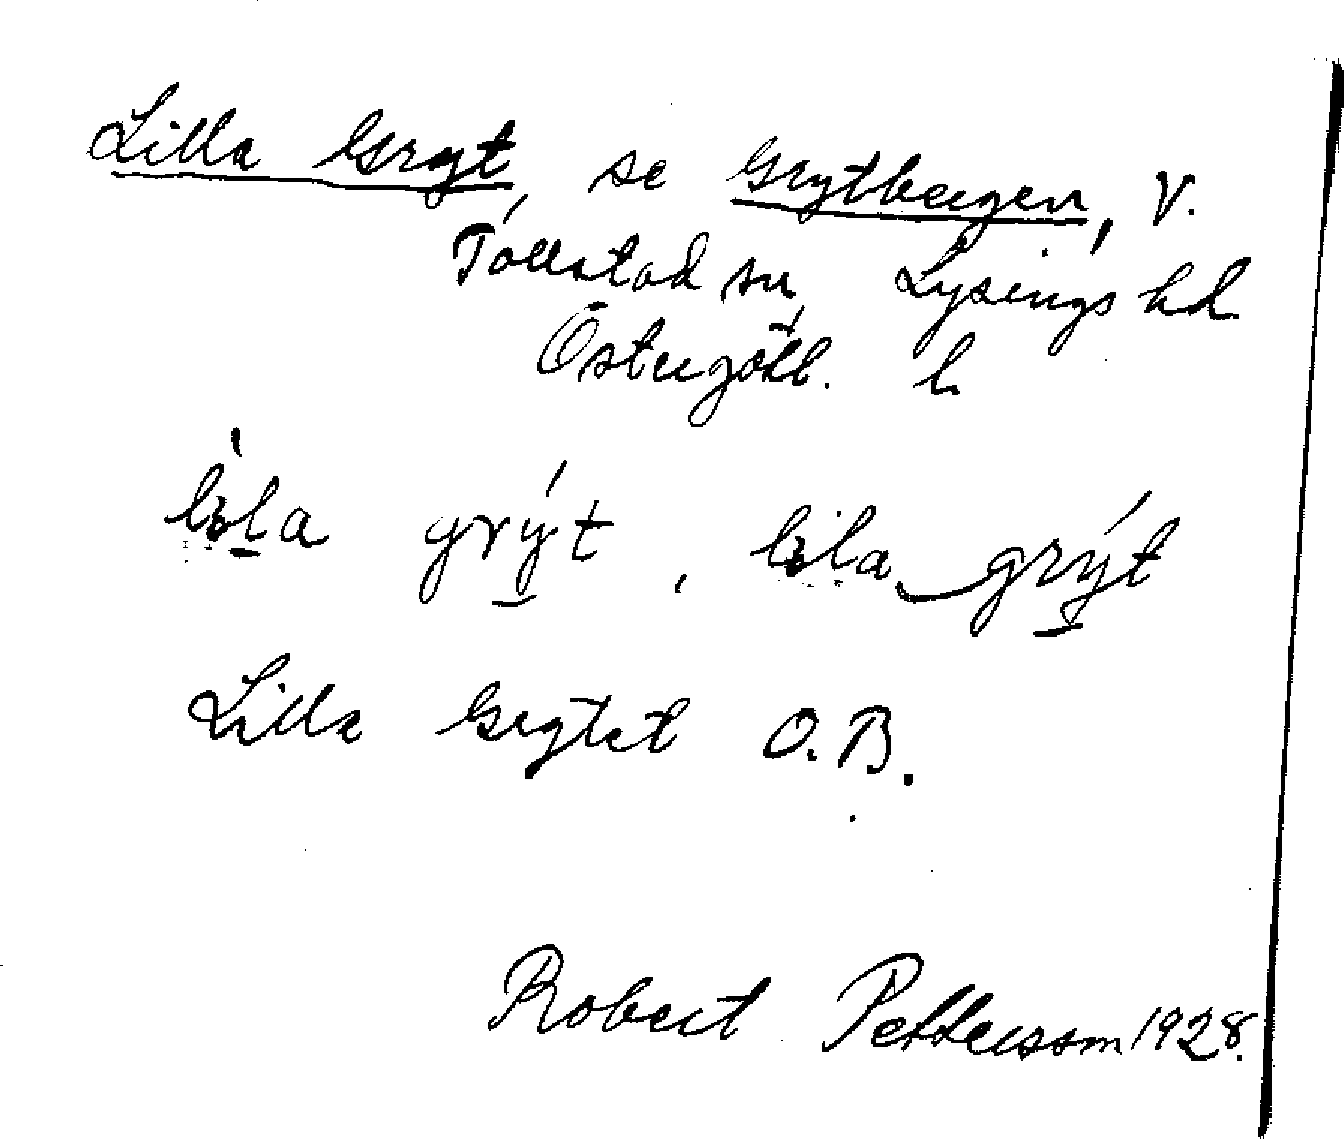 Lilla Gryt, se Grytbergen, V.
Tollstad sn, Lysings hd
Östergötl. l.
lı̀la grýt, lila grýt
Lilla Grytet O.B.
Robert Pettersson 1928.